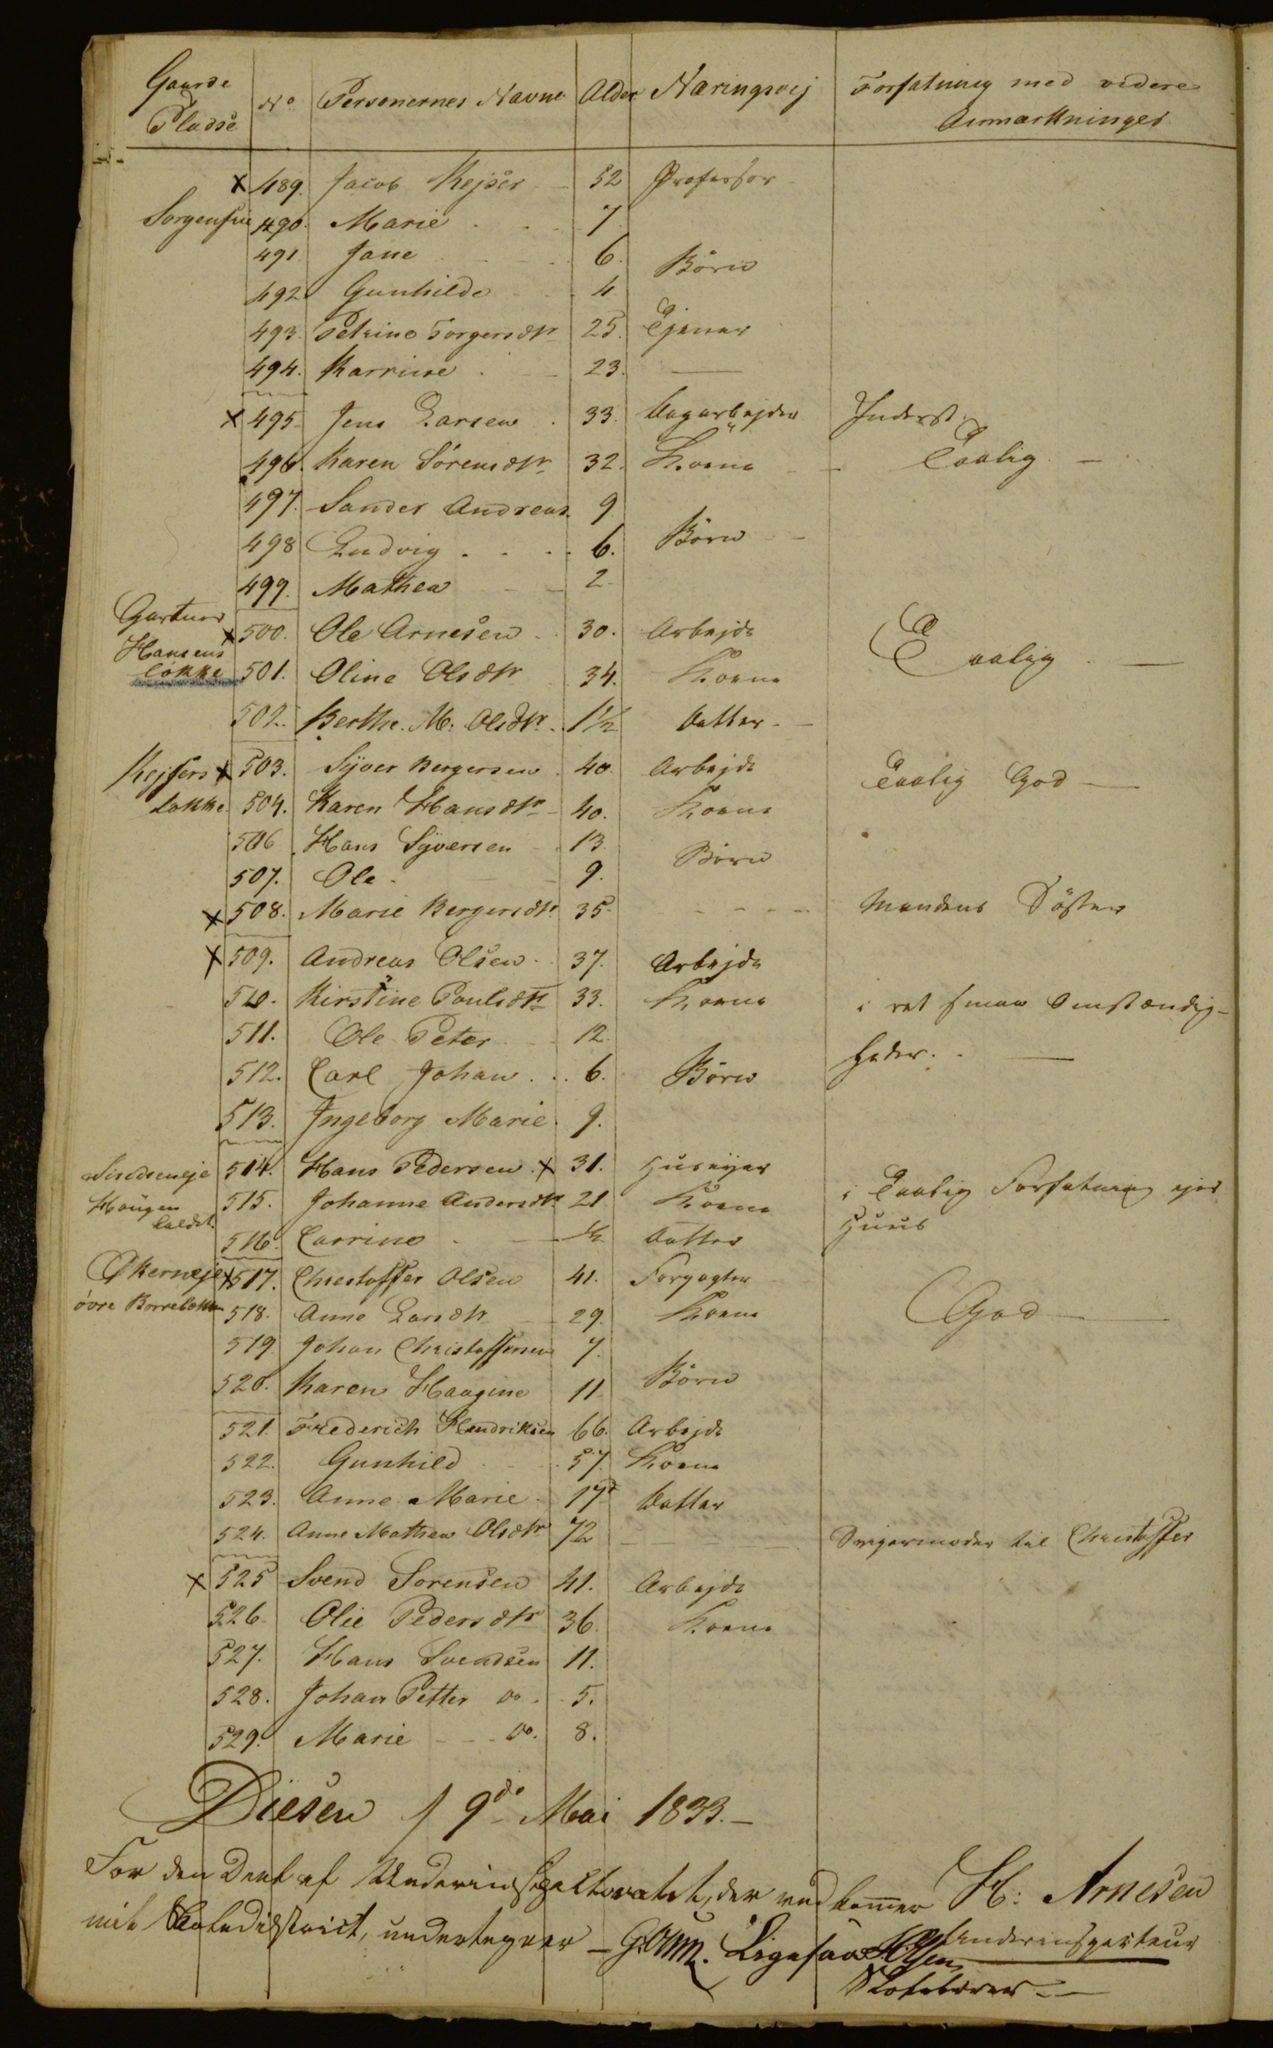 Gaarde & Pladse No Personernes Navne Alder Næringsvej Forfatning med videre Anmærkninger
x 489. Jacob Kejser 52 Professor
Sorgenfrie 490. Marie 7
491. Jane 6. Børn
492 Gunhilde 4
493. Petrine Torgersdtr 25. Tjener
494. Karrine 23. —
x 495. Jens Larsen 33. Dagarbejder Inderst
496. Karen Sørensdtr 32. Kone Taalig —
497. Sander Andreas 9
498 Ludvig 6. Børn
499. Mathea 2
Gartner Hansens Løkke x 500. Ole Arnesen 30. Arbejde Taalig —
501. Oline Olsdtr 34. Kone
502. Berthe M. Olsdtr 1½ Datter
Kejsers Løkke x 503. Syver Bergersen 40 Arbejde Taalig God —
504. Karen Hansdtr 40. Kone
506 Hans Syversen 13. Børn
507. Ole 9.
x 508. Marie Bergersdtr 35. Mandens Søster
x 509. Andreas Olsen 37. Arbejde
510. Kirstine Poulsdtr 33. Kone i ret smaa Omstændig-
511. Ole Peter 12 heder. —
512. Carl Johan 6. Børn
513. Ingeborg Marie 9.
514. Hans Pedersen x 31. Huseyer
Haugen kaldet 515. Johanne Andersdtr 21 Kone i Taalig Forfatning ejer
516. Carrine ½ Datter Huus
øvre x 517. Christoffer Olsen 41. Forpagter
518. Anne Larsdtr 29. Kone God —
519 Johan Christoffersen 7.
520. Karen Haagine 11. Børn
521. Frederich Hendriksen 66. Arbejde
522. Gunhild 57 Kone
523. Anne Marie 17 Datter
524. Anne Mathea Olsdtr 72 Svigermoder til Christoffer
x 525 Svend Sørensen 41. Arbejde
526. Olie Pedersdtr 36. Kone
527. Hans Svendsen 11.
528. Johan Petter do 5.
529. Marie do. 8.
Diesen 19de Mai 1833.—
For den Deel af Underinspectoratet, der vedkommer H: Arnesen
mit Rodedistrict, undertegner — Ligesaa Underinspecteur